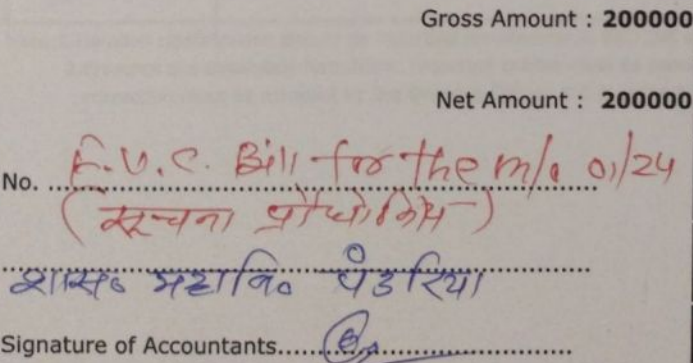 Gross Amount : 200000
Net Amount : 200000
No. F.V.C. Bill for the m/o 01/24
(सूचना प्रौद्योगिकी)
शास० महावि० पंडरिया
Signature of Accountants.....